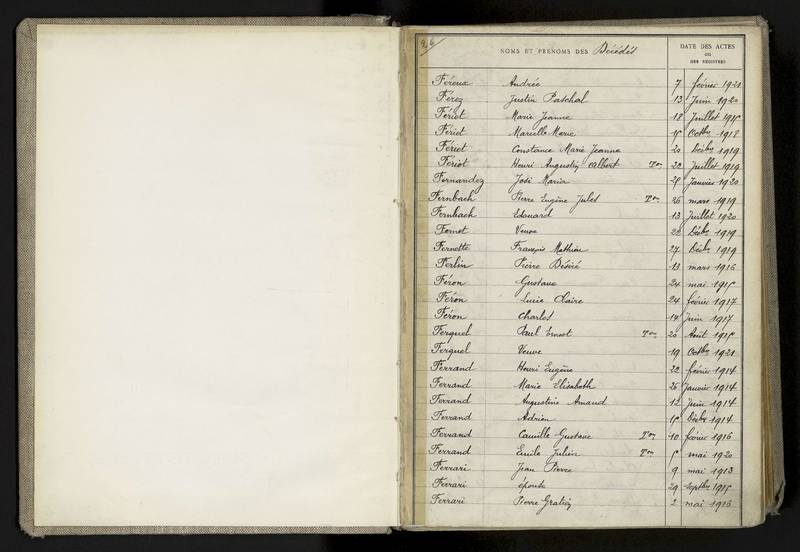 26
NOMS ET PRÉNOMS DES Décédés
DATE DES ACTES
OU
DES REGISTRES
Féreux Andrée 7 février 1921
Férez Justin Paschal 13 Juin 1920
Fériet Marie Jeanne 18 Juillet 1915
Fériet Marcelle Marie 15 Octbre 1918
Fériet Constance Marie Jeanne 20 Décbre 1919
Fériot Henri Augustin Albert Ton 20 Juillet 1919
Fernandez José Maria 29 Janvier 1920
Fernbach Pierre Eugène Jules Ton 26 mars 1919
Fernbach Edouard 13 Juillet 1920
Fernet Veuve 22 Décbre 1919
Fernette François Mathieu 27 Décbre 1919
Ferlin Pierre Désiré 13 mars 1916
Féron Gustave 24 mai 1915
Féron Lucie Claire 24 février 1917
Féron Charles 14 Juin 1917
Ferquel Paul Ernest Ton 20 Août 1915
Ferquel Veuve 19 Octbre 1921
Ferrand Henri Eugène 22 février 1914
Ferrand Marie Elisabeth 26 Janvier 1914
Ferrand Augustine Amand 12 Juin 1914
Ferrand Adrien 15 Décbre 1914
Ferrand Camille Gustave Ton 10 février 1916
Ferrand Emile Julien Ton 5 mai 1920
Ferrari Jean Pierre 9 mai 1913
Ferrari épouse 29 Septbre 1915
Ferrari Pierre 2 mai 1916